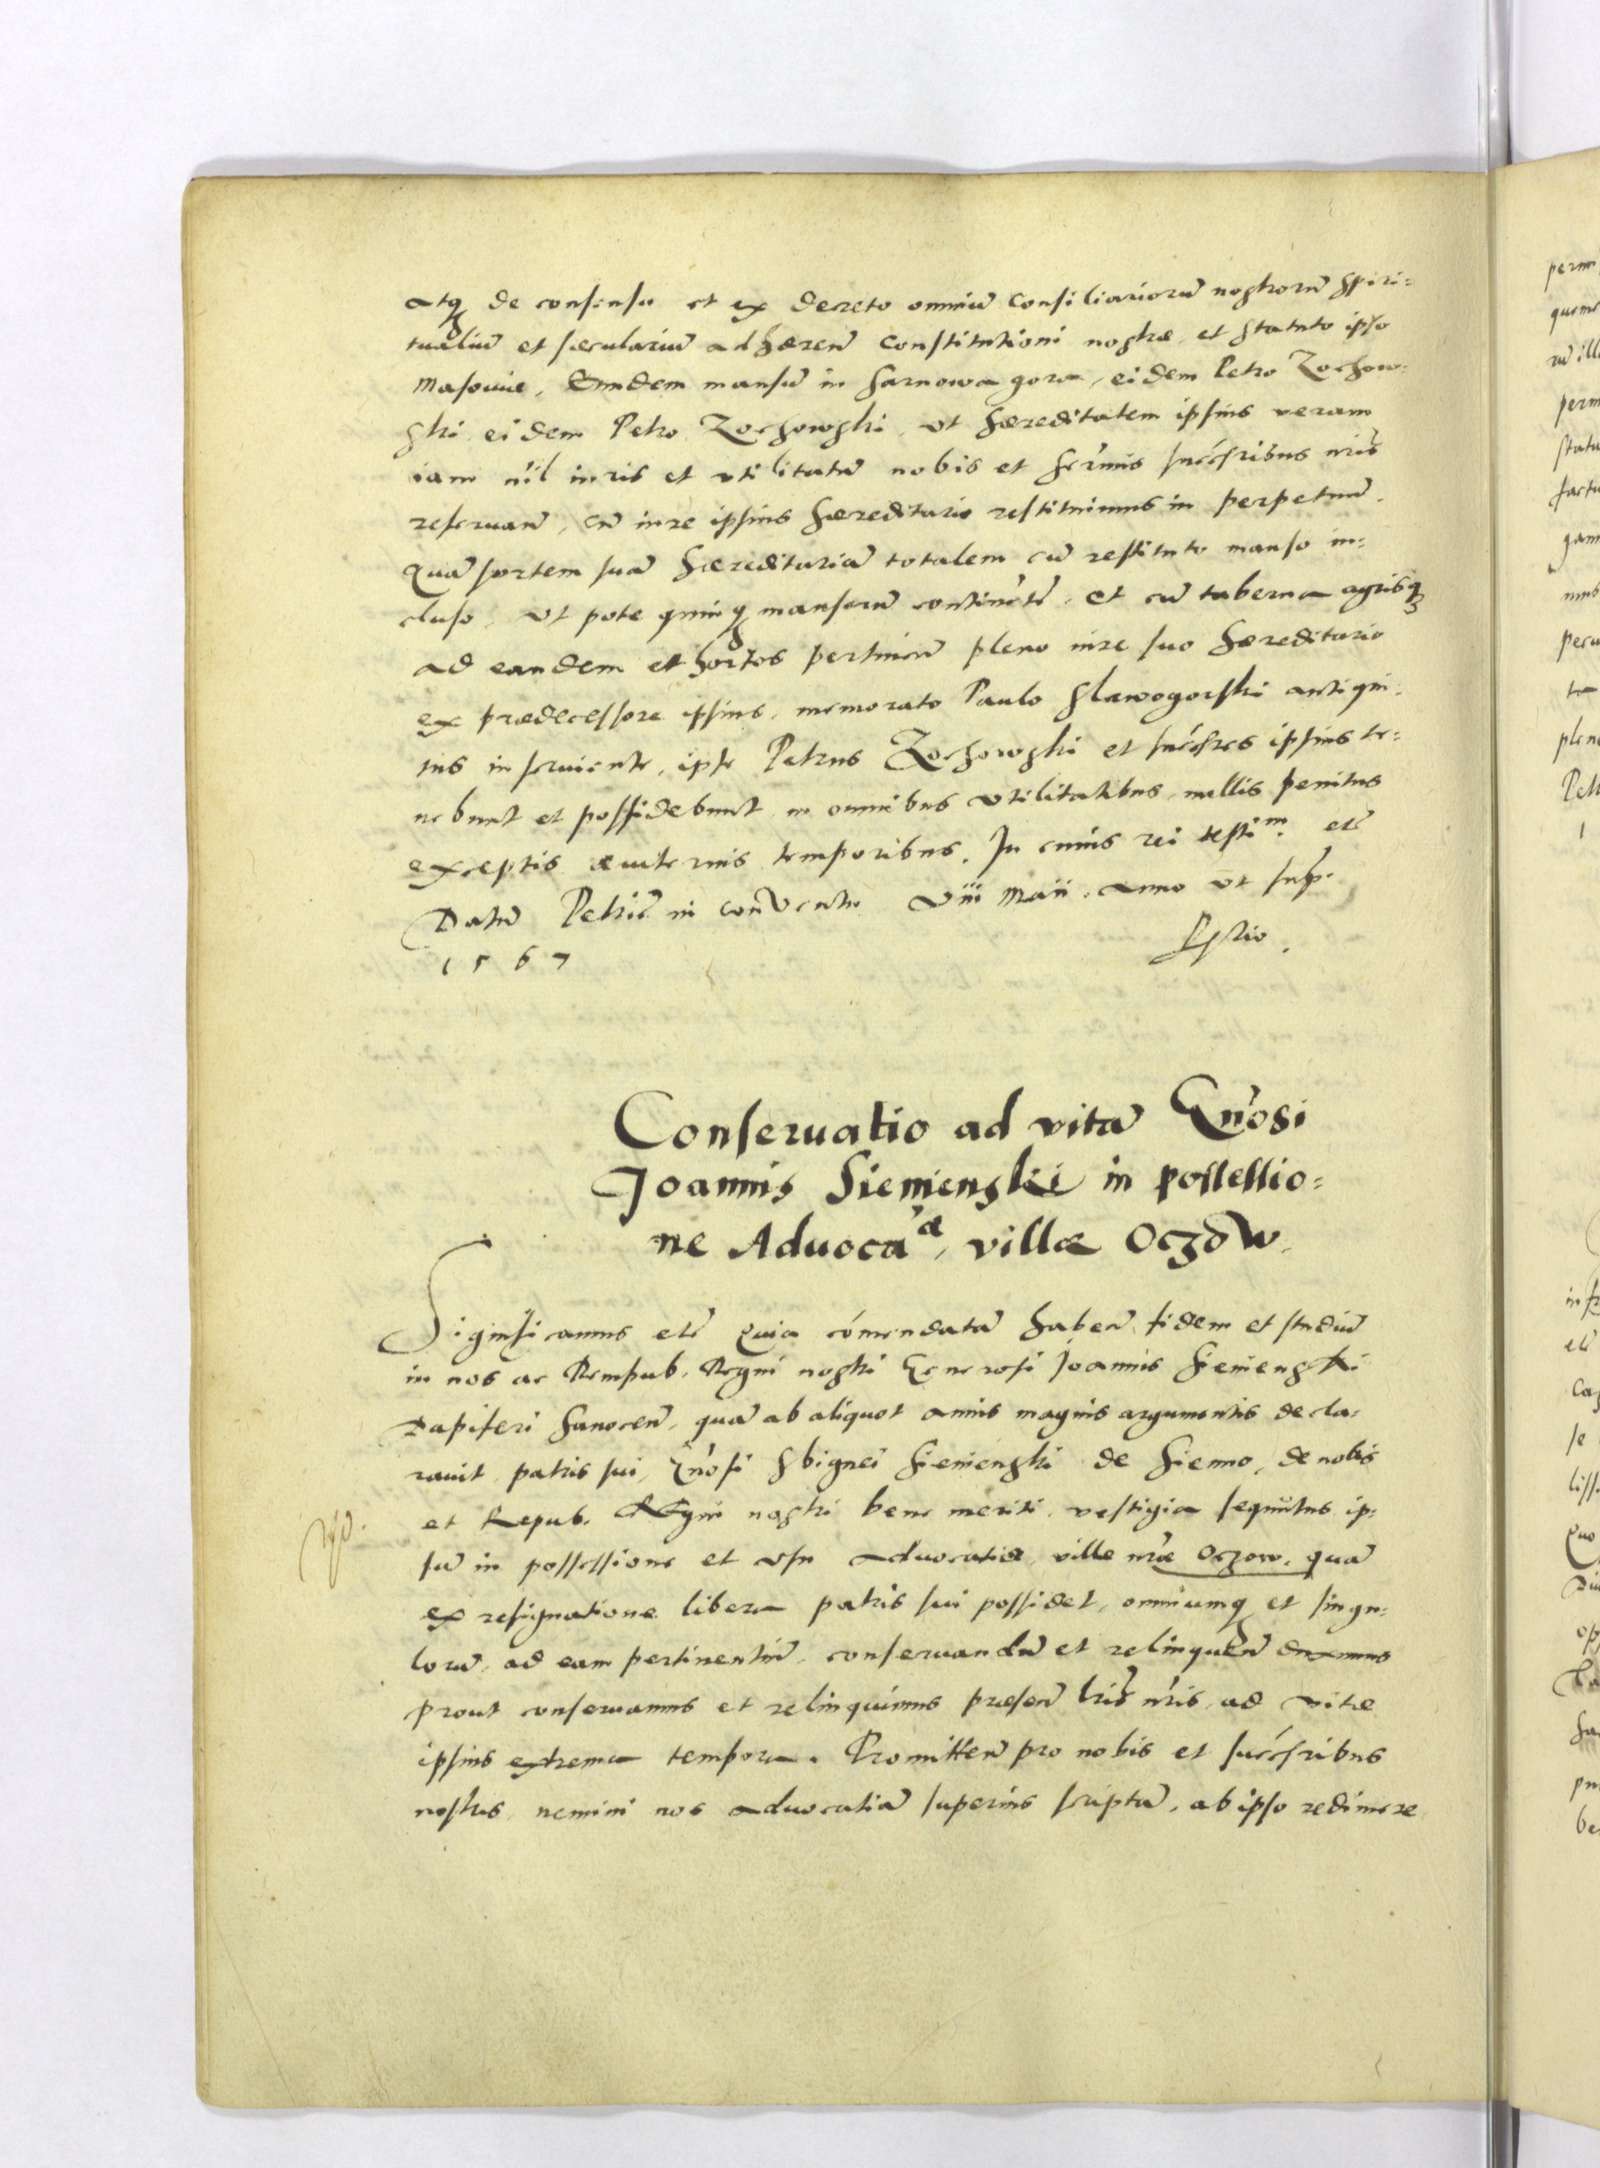 atq de consensu et ex decreto omniũ consiliariorũ nostrorũ spiri-
tualiũ et sæculariũ adhæreñ constitutioni nostræ et statuto ipso
Masoviæ, Eundem mansũ in Sarnowa gora, eidem Petro Zochow-
ski eidem Petro Zochowski, ut hæreditatem ipsius veram
iam nil iuris et utilitatũ nobis et Sermis succesribus nris
reseruanẽ, cũ iure ipsius hæreditario restituimus in perpetuũ.
Quã sortem suã hæreditariã totalem cũ restituto manso in-
cluso, ut pote quinq mansorũ continentẽ, et cũ taberna agrisq
ad eandem et hortos pertineñ pleno iure suo hæreditario
ex prædecessore ipsius, memorato Paulo Slawogorski antiqui-
tus inseruiente, ipse Petrus Zochowski et succesres ipsius te-
nebunt et possidebunt in omnibus utilitatibus nullis penitus
exceptis æuiternis temporibus. In cuius rei testim. etc̃
Datũ Petric̃ in conventu viii Maii, Anno ut sup.
1567
Conseruatio ad vitã Gnosi
Joannis Siemienski in possessio-
ne Aduocaæ, villæ Oczow.
Significamus etc̃ Quia com̃endatã habeñ fidem et studiũ
in nos ac Rempub. Regni nostri Generosi Joannis Siemienski
Dapiferi Sanoceñ, quã ab aliquot annis magnis argumentis decla-
rauit patris sui, Gnosi Sbignei Siemienski de Sienno, de nobis
et Repub. Regni nostri bene meriti vestigia sequutus ip-
sũ in possessione et usu aduocatiæ villæ nræ Oczow, quã
ex resignatione libera patris sui possidet, omniumq et singu-
lorũ, ad eam pertinentiũ, conseruandũ et relinqueñ duximus
prout conseruamus et relinquimus præseñ lris nris, ad vitæ
ipsius extrema tempora. Promitteñ pro nobis et succesribus
nostris nemini nos aduocatiã superius scriptã, ab ipso redimere